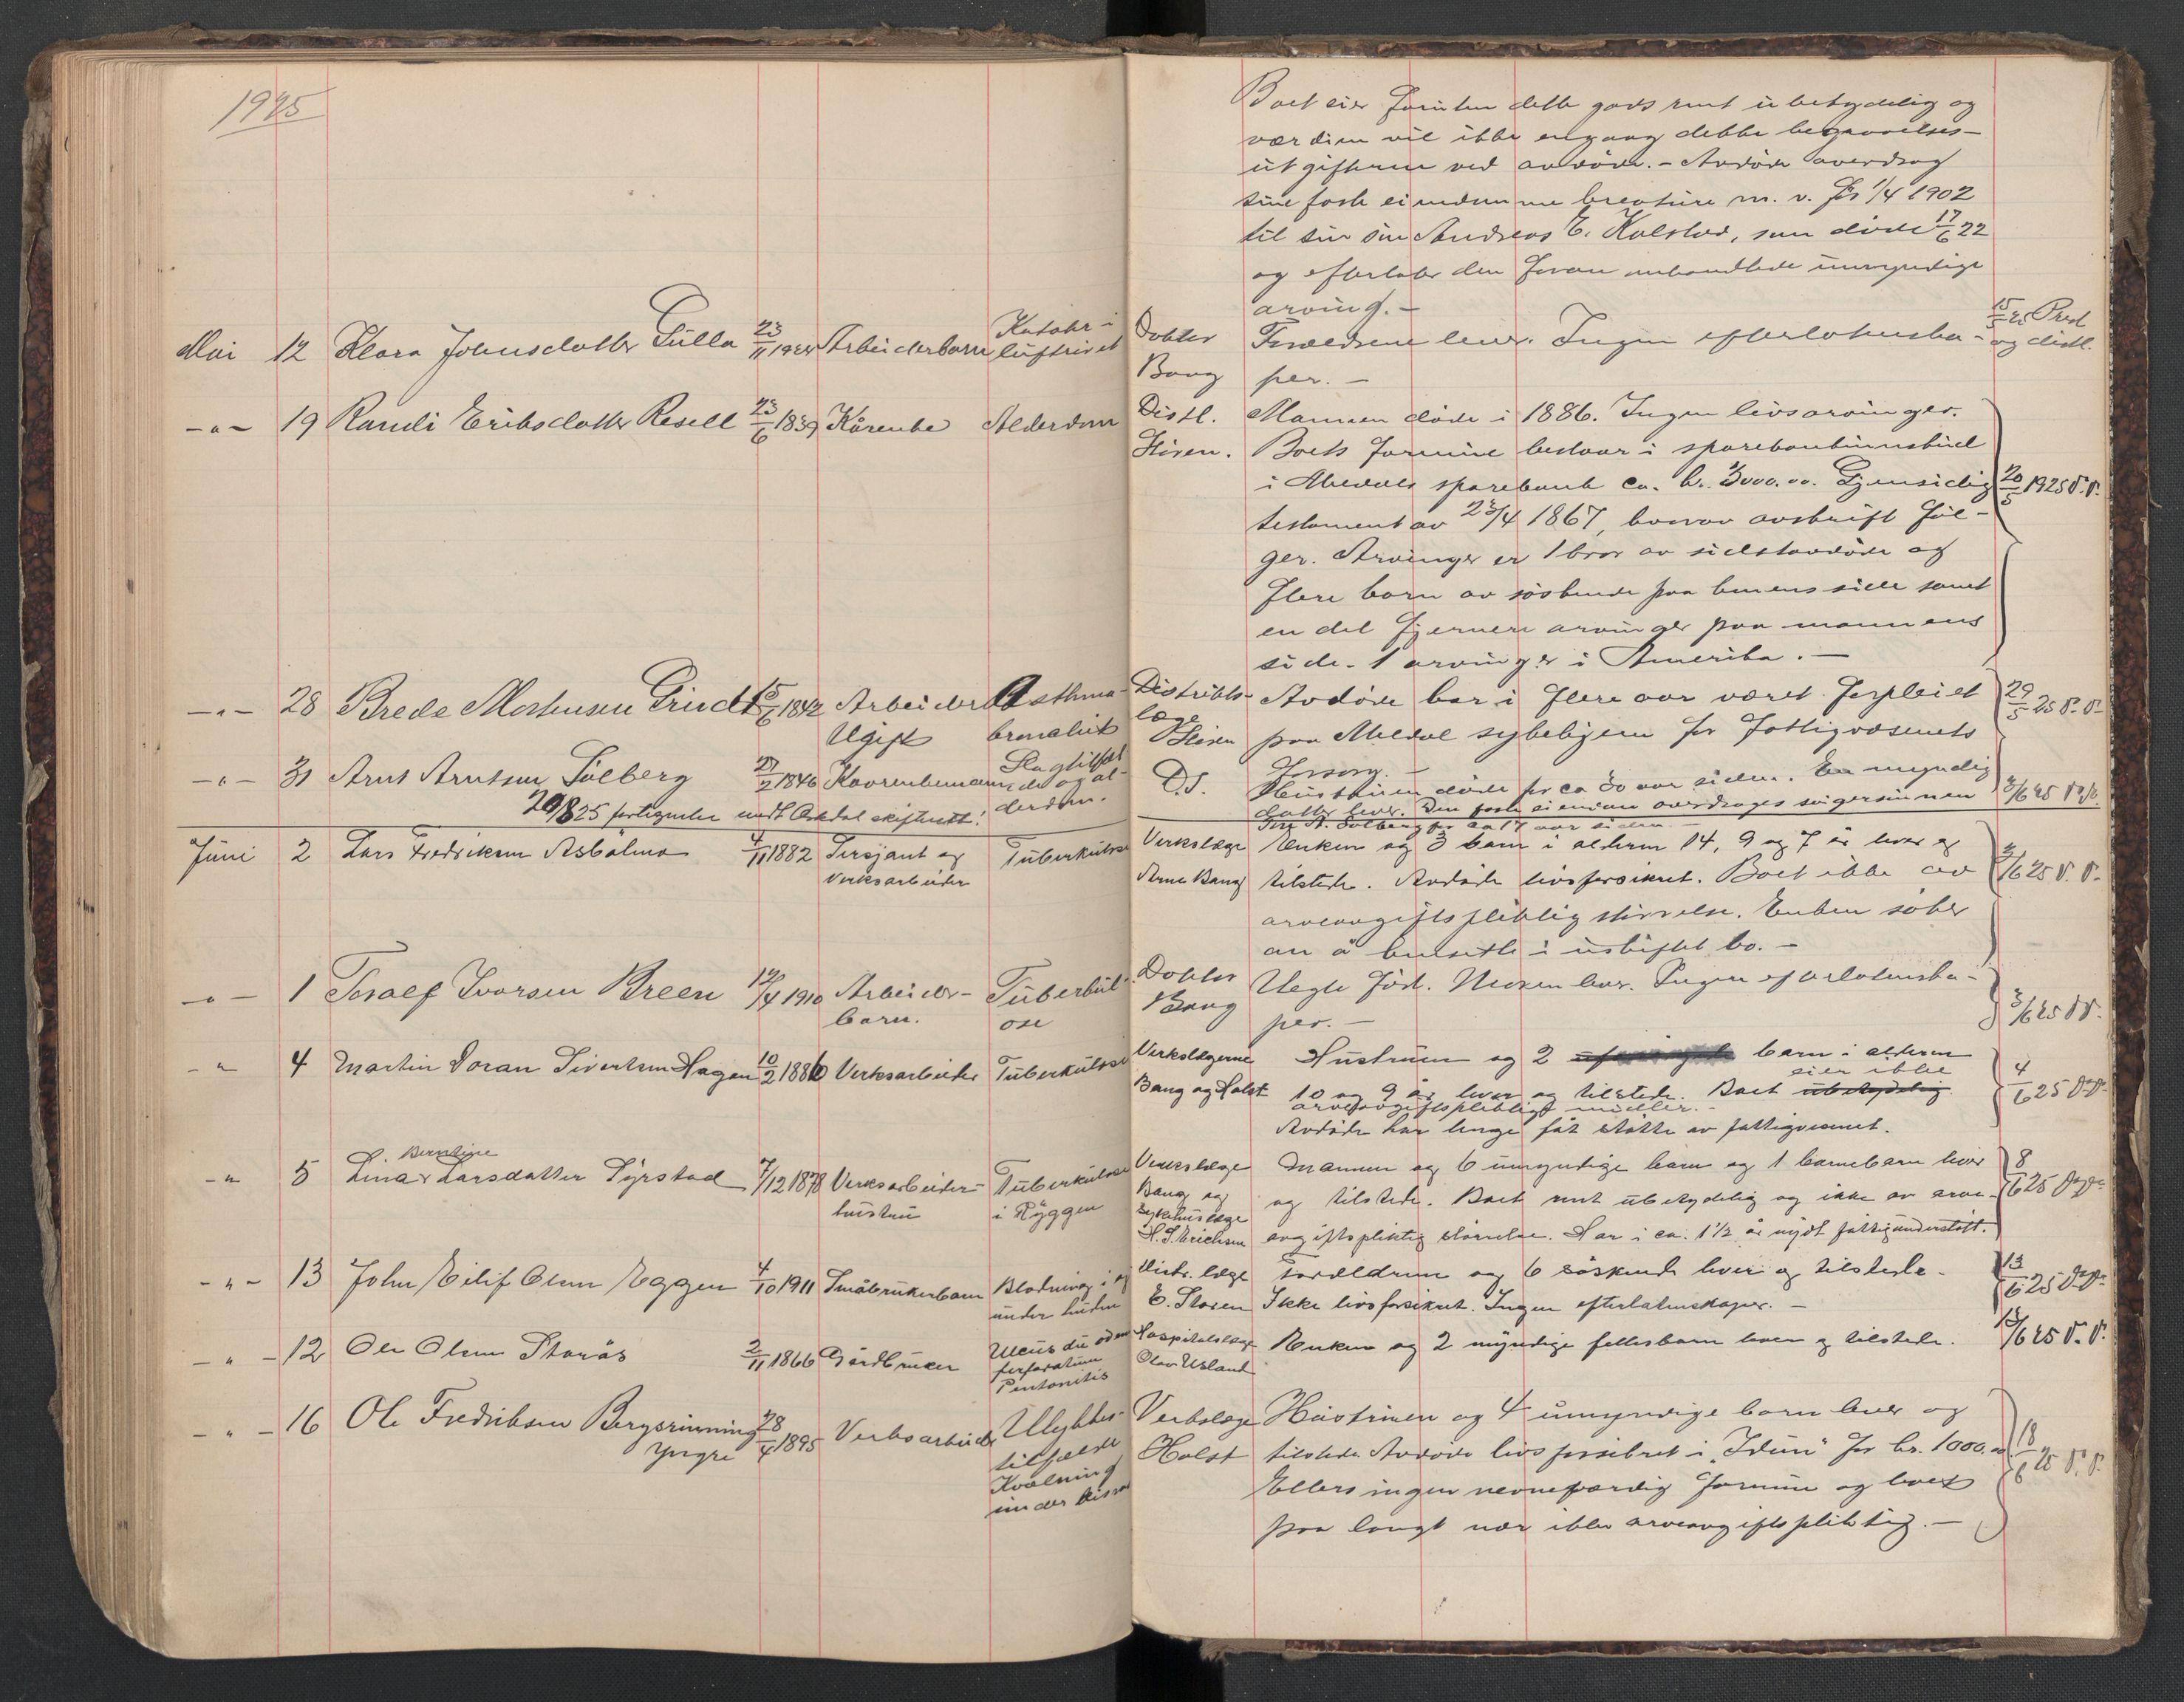 1925
Boet eier foruten dette gods rent ubetydelig og
værdien vil ikke engang dekke begravelses-
utgifterne ved avdöde. - Avdöde overdrog
sine faste eiendomme kreature m. v. før 1/4 1902
til sin sön Andreas E. Kalstad, som döde 17/6 22
og efterlater den foran anhandlede umyndige
arving. -
Mai 12 Klara Johnsdatter Gulla 23/11 1924 Arbeiderbarn Katahr i luftröret
Doktor Bang
Foreldrene lever. Ingen efterlatenska-
per. -
15/5 25 Prest og distl.
-"- 19 Randi Eriksdatter Resell 23/6 1839 Kårenke Alderdom
Distl. Stören.
Mannen döde i 1886. Ingen livsarvinger.
Boets formue bestaar i sparebankinnskud
i Meldals sparebank ca. kr. 3000.00. Gjensidig
testament av 23/4 1867, hvorav avskrift föl-
ger. Arvinger er 1 bror av sidstavdöde og
flere barn av söskende paa konens side samt
en del fjernere arvinger paa mannens
side. 1 arving er i Amerika. -
20/5 1925 P.P.
-"- 28 Brede Mortensen Grindt 15/6 1842 Arbeider Ugift Asthma bronchit
Distriktslæge Stören
Avdöde har i flere aar været forpleiet
paa Meldal sykehjem for fattigvæsenets
forsorg. -
29/5 25 P.P.
-"- 31 Arnt Arntsen Solberg 27/2 1846 Kaarenkemann Slagtilfælde og alderdom.
20/8 25 fortegnelse sendt Orkdal skifterett!
D.S.
Hustruen döde for ca 30 aar siden. En myndig
datter lever. Den faste eiendom overdroges svigersönnen
A. Solberg for ca 17 aar siden -
3/6 25
Juni 2 Lars Fredriksen Asbölmo 4/11 1882 Sersjant og verksarbeider Tuberkulose
Verkslæge Arne Bang
Enken og 3 barn i alderen 14, 9 og 7 år lever og
tilstede. Avdöde livsforsikret. Boet ikke av
arveavgiftspliktig störrelse. Enken söker
om å hensitte i uskiftet bo. -
3/6 25 P.P.
-"- 1 Toralf Ivarsen Breen 14/4 1910 Arbeiderbarn. Tuberkulose
Doktor Bang
Uegte föd. Moren lever. Ingen efterlatenska-
per. -
3/6 25 P.P.
-"- 4 Martin Doran Sivertsen Hagen 10/2 1886 Verksarbeider Tuberkulose
Verkslægerne Bang og Holst
Hustruen og 2 barn i alderen
10 og 9 år lever og tilstede. Boet ubetydelig eier ikke
arveavgiftspliktige midler. -
Avdöde har lenge fåt stötte av fattigvesenet.
4/6 25
-"- 5 Lina Berntine Larsdatter Syrstad 7/12 1878 Verksarbeiderhustru Tuberkulose i Ryggen
Verkslæge Bang og sykehuslæge H. S. Erichsen
Mannen og 6 umyndige barn og 1 barnebarn lever
og tilstede. Boet rent ubetydelig og ikke av arve-
avgiftspliktig störrelse. Har i ca. 1 1/2 år nydt fattigunderstött.
8/6 25
-"- 13 John Eilif Olsen Eggen 4/10 1911 Småbrukerbarn Blödning i og under huden
Distr. læge E. Stören
Foreldrene og 6 söskende lever og tilstede.
Ikke livsforsikret. Ingen efterlatenskaper. -
13/6 25
-"- 12 Ole Olsen Storås 2/11 1866 Gårdbruker Ulcus duodeni perforatum Peritonitis
Hospitalslæge Olav Usland
Enken og 2 myndige fellesbarn lever og tilstede.
13/6 25 P.P.
-"- 16 Ole Fredriksen Bergsrönning yngre 28/4 1895 Verksarbeider Ulykkestilfælde Kvælning under
Verkslæge Holst
Hustruen og 4 umyndige barn lever og
tilstede. Avdöde livsforsikret i "Idun" for kr. 1000.00
Ellers ingen nevneverdig formue og boet
paa langt nær ikke arveavgiftspliktig. -
18/6 25 P.P.